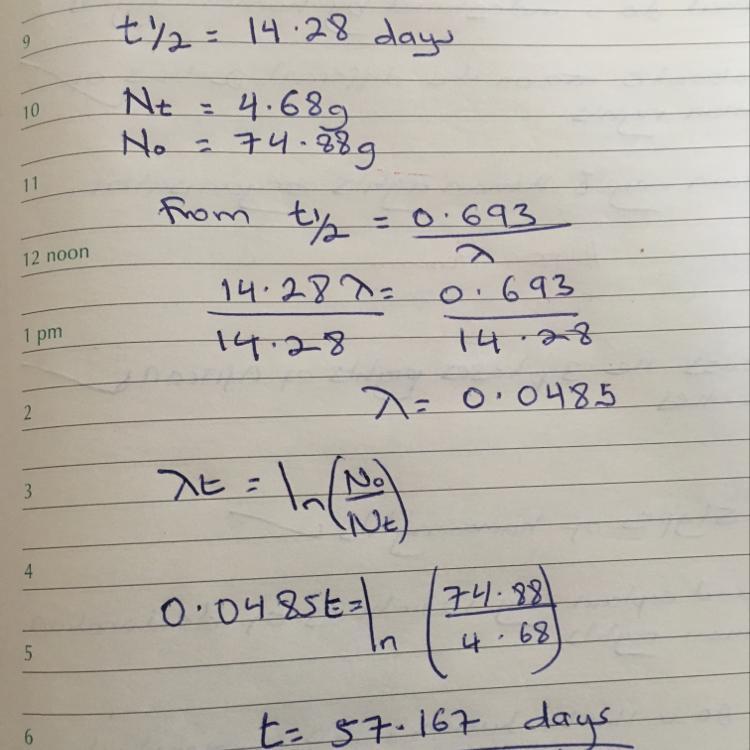 9
t½ = 14.28 days
10
Nt = 4.68g
N₀ = 74.88g
11
From t½ = 0.693
λ
12 noon
14.28 λ = 0.693
14.28 14.28
1 pm
2
λ = 0.0485
3
λt = ln(N₀
Nt)
4
0.0485t = ln (74.88
4.68)
5
6
t = 57.167 days